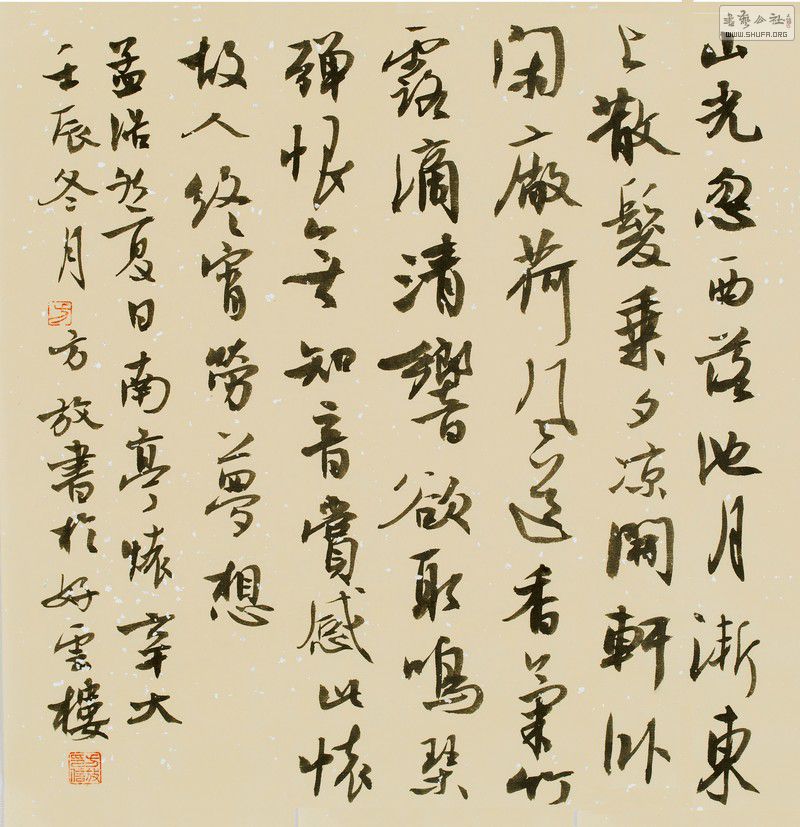 山光忽西落池月漸東
上散髮乘夕涼開軒臥
閑廠荷風送香氣竹
露滴清響欲取鳴琴
彈恨無知音賞感此懷
故人終宵勞夢想
孟浩然夏日南亭懷辛大
壬辰冬月方放書於好雲樓
WWW.SHUFA.ORG